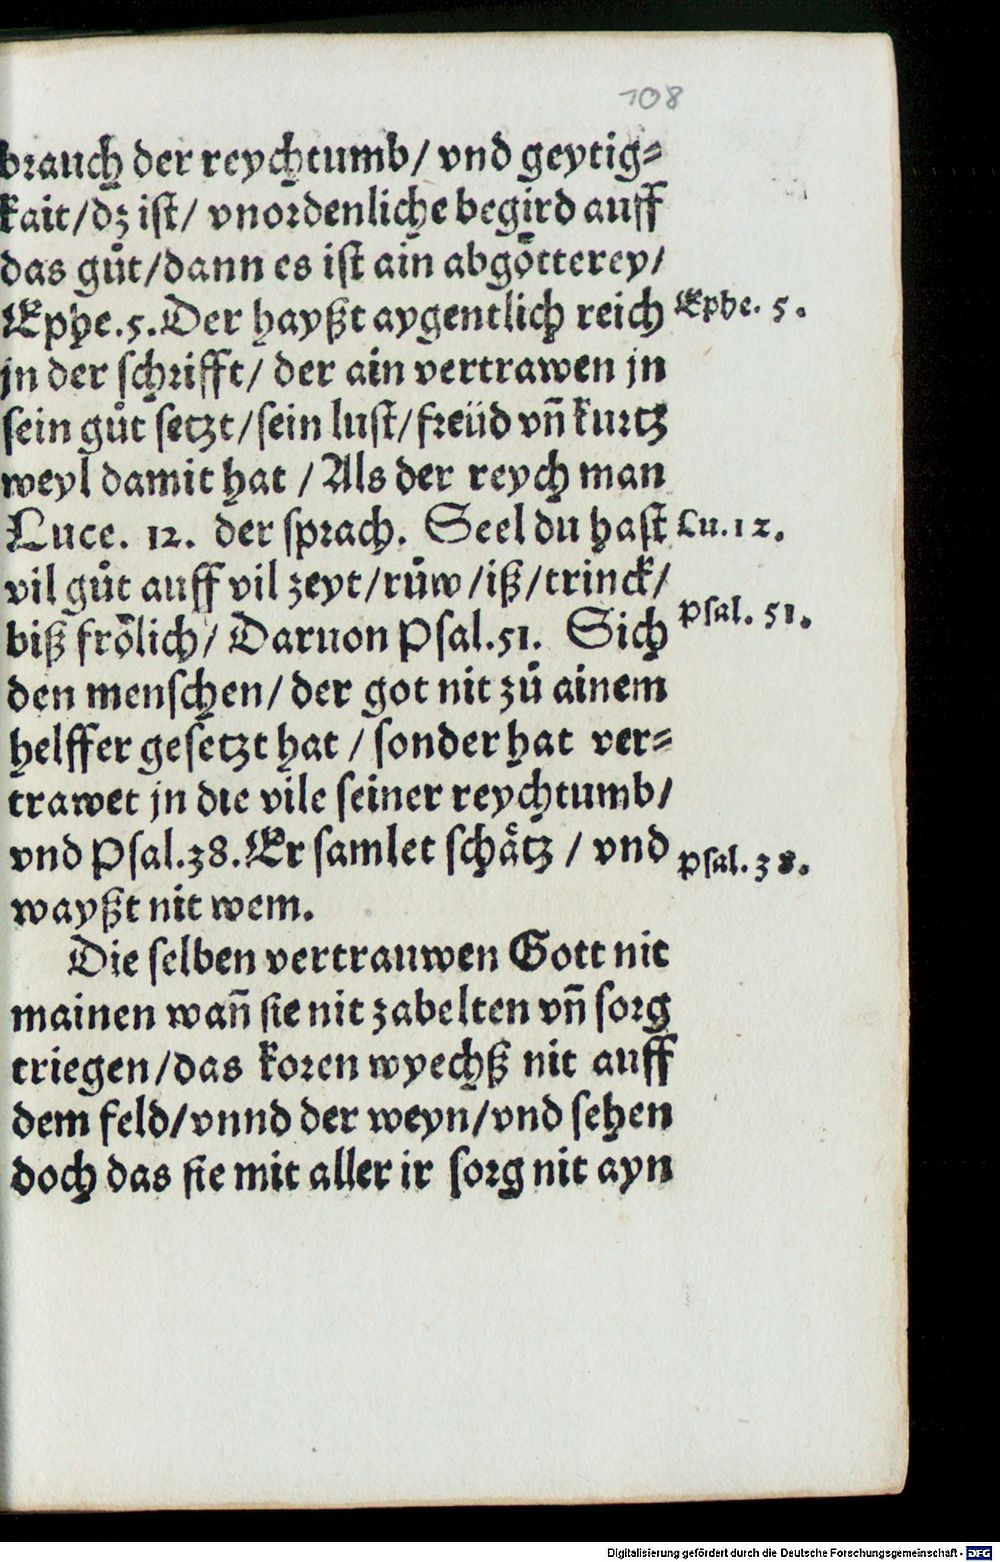 108
brauch der reychtumb/ vnd geytig⸗
kait/dz ist/ vnordenliche begird auff
das guͦt/dann es ist ain abgoͤtterey/
Ephe.5.Der hayßt aygentlich reich
Ephe. 5.
jn der schrifft/ der ain vertrawen jn
sein guͦt setzt/sein lust/freüd vñ kurtz
weyl damit hat /Als der reych man
Luce. 12. der sprach. Seel du hast
Lu.12.
vil guͦt auff vil zeyt/ruͦw/iß/trinck/
biß froͤlich/ Daruon Psal.51. Sich
Psal. 51.
den menschen/ der got nit zuͦ ainem
helffer gesetzt hat / sonder hat ver⸗
trawet jn die vile seiner reychtumb/
vnd Psal.38.Er samlet schaͤtz / vnd
Psal.38.
wayßt nit wem.
Die selben vertrauwen Gott nit
mainen wañ sie nit zabelten vñ sorg
triegen/das koren wyechß nit auff
dem feld/vnnd der weyn/vnd sehen
doch das sie mit aller ir sorg nit ayn
Digitalisierung gefördert durch die Deutsche Forschungsgemeinschaft - DFG